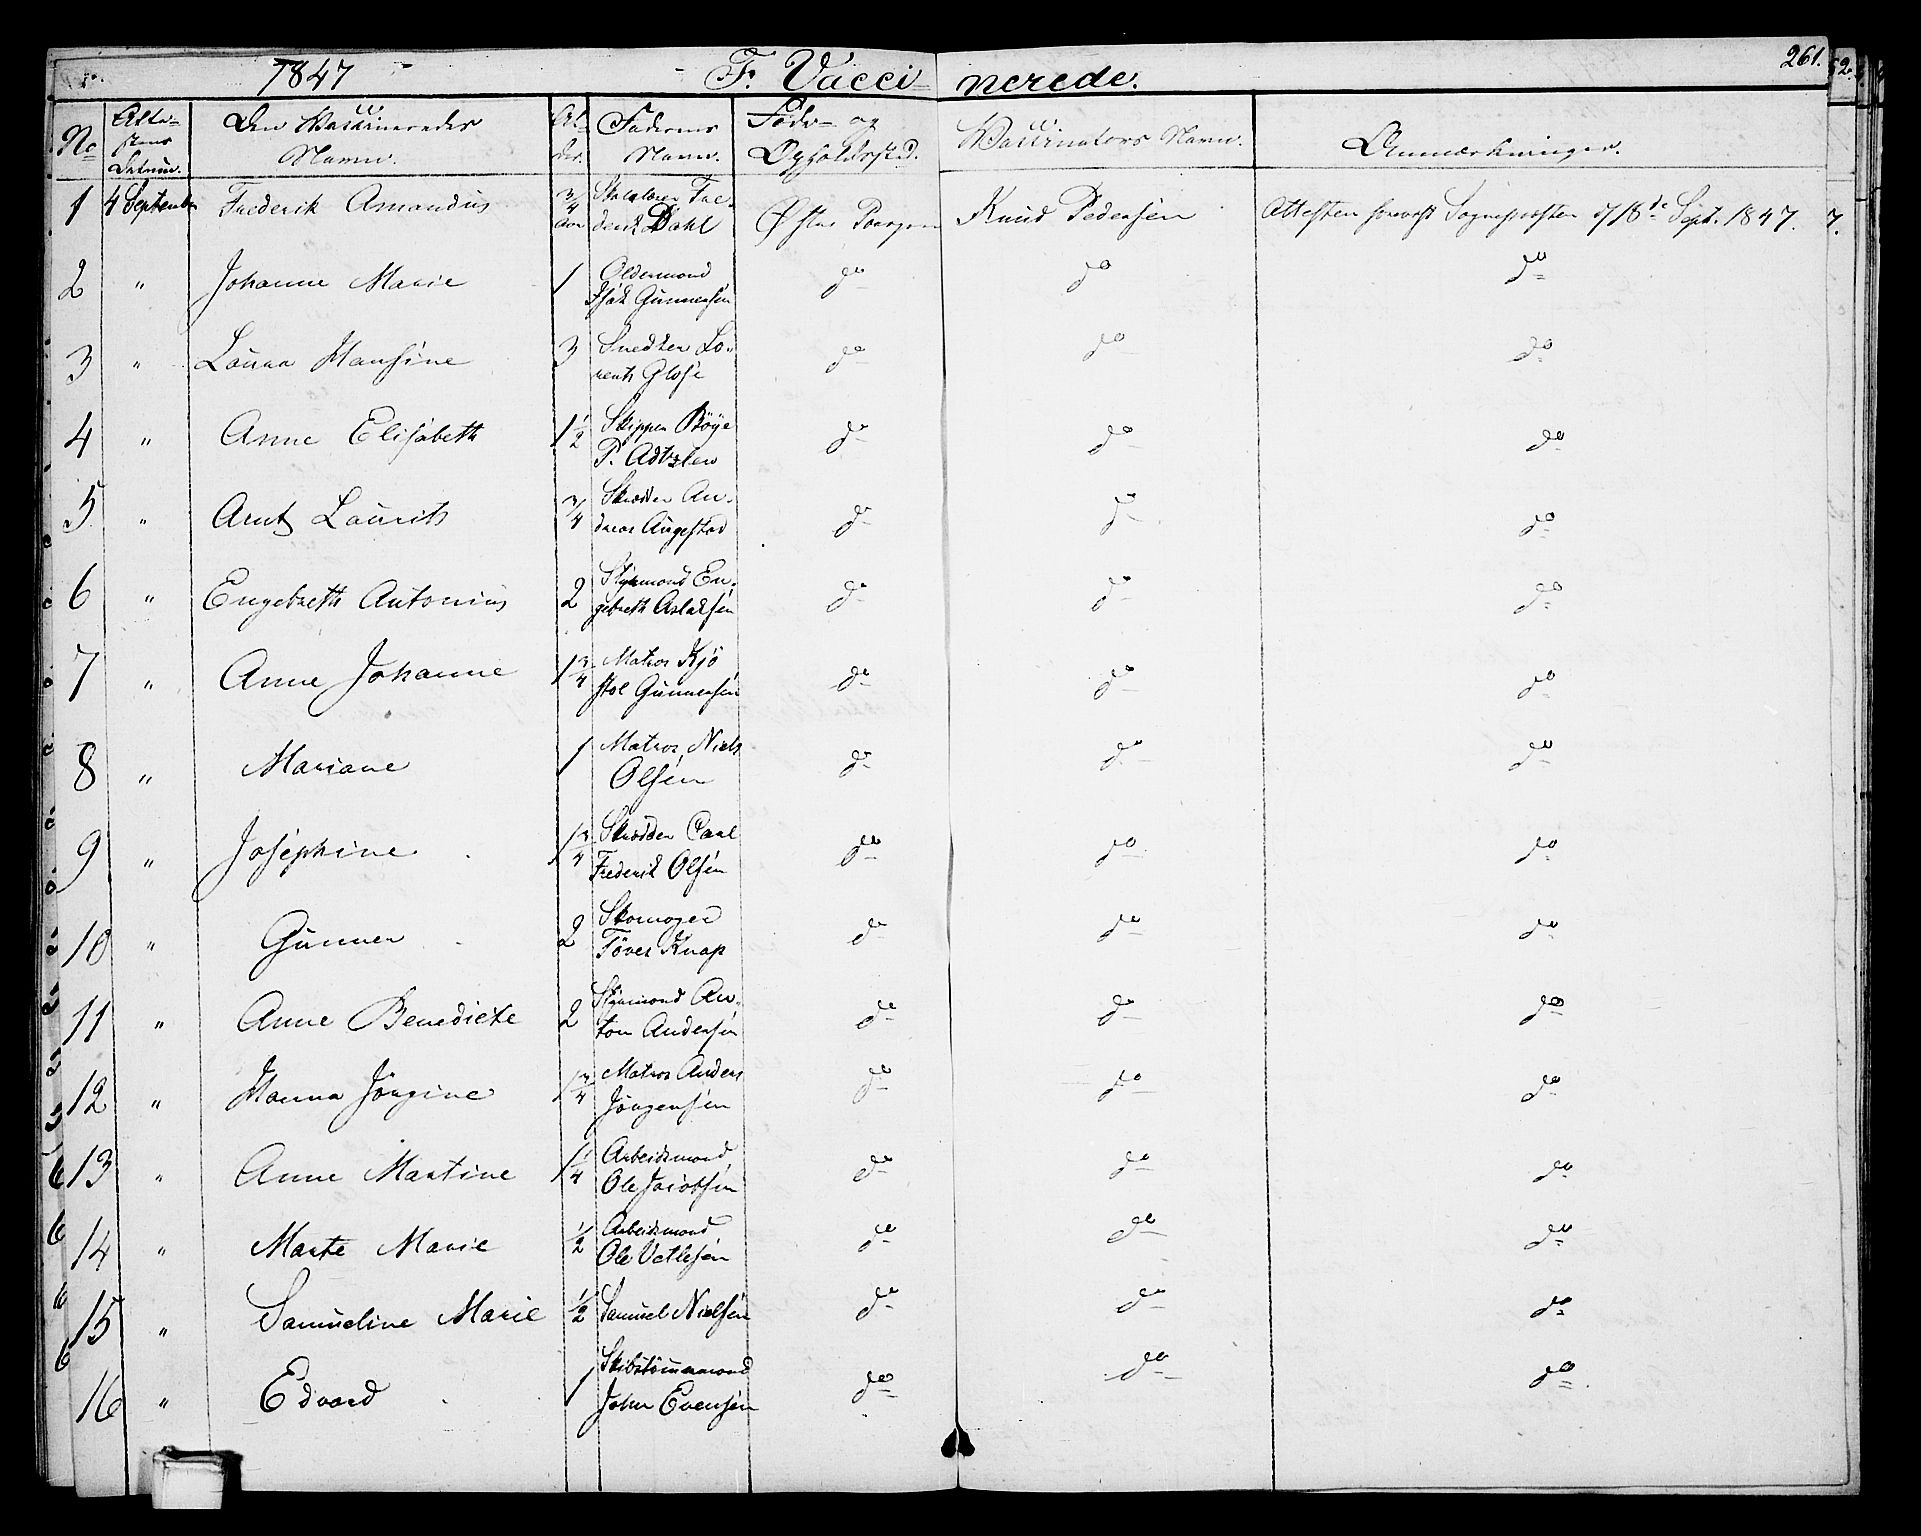 1847 F. Vaccinerede. 261.
No Attestens Datum. Den Vaccineredes Navn. Alder. Faderens Navn. Føde- og Opholdssted. Vaccinators Navn. Anmærkninger.
1 4 September Frederik Amandus 3/4 Aar Skolelærer Frederik Dahl Østre Porsgrun Knud Pedersen Attesten forevist Sognepræsten d 18de Sept. 1847. 7.
2 " Johanne Marie 1 Oldermand Isak Gunnersen do do do
3 " Laura Hansine 3 Snedker Lorents Glose do do do
4 " Anne Elisabeth 1 1/2 Skipper Böye P. do do do
5 " Arnt Laurits 3/4 Skrædder Andreas Augestad do do do
6 " Engebreth Antonius 2 Styrmand Engebreth Aslaksen do do do
7 " Anne Johanne 1 3/4 Matros Kjöstol Gunnersen do do do
8 " Mariane 1 Matros Niels Olsen do do do
9 " Josephine 1 3/4 Skrædder Carl Frederik Olsen do do do
10 " Gunner 2 Skomager Töves Knap do do do
11 " Anne Benedicte 2 Styrmand Anton Andersen do do do
12 " Hanna Jörgine 1 3/4 Matros Anders Jörgensen do do do
13 " Anne Martine 1 1/4 Arbeidsmand Ole Jacobsen do do do
14 " Marte Marie 1/2 Arbeidsmand Ole Vetlesen do do do
15 " Samueline Marie 1/2 Samuel Nielsen do do do
16 " Edvard 1 Skibstömmermand John Evensen do do do